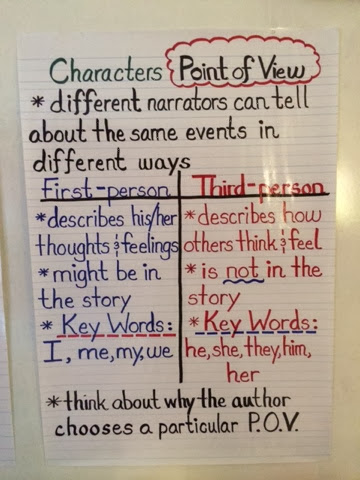 Characters Point of View
* different narrators can tell
about the same events in
different ways
First-person
* describes his/her
thoughts & feelings
* might be in
the story
* Key Words:
I, me, my, we
Third-person
* describes how
others think & feel
* is not in the
story
* Key Words:
he, she, they, him,
her
* think about why the author
chooses a particular P.O.V.